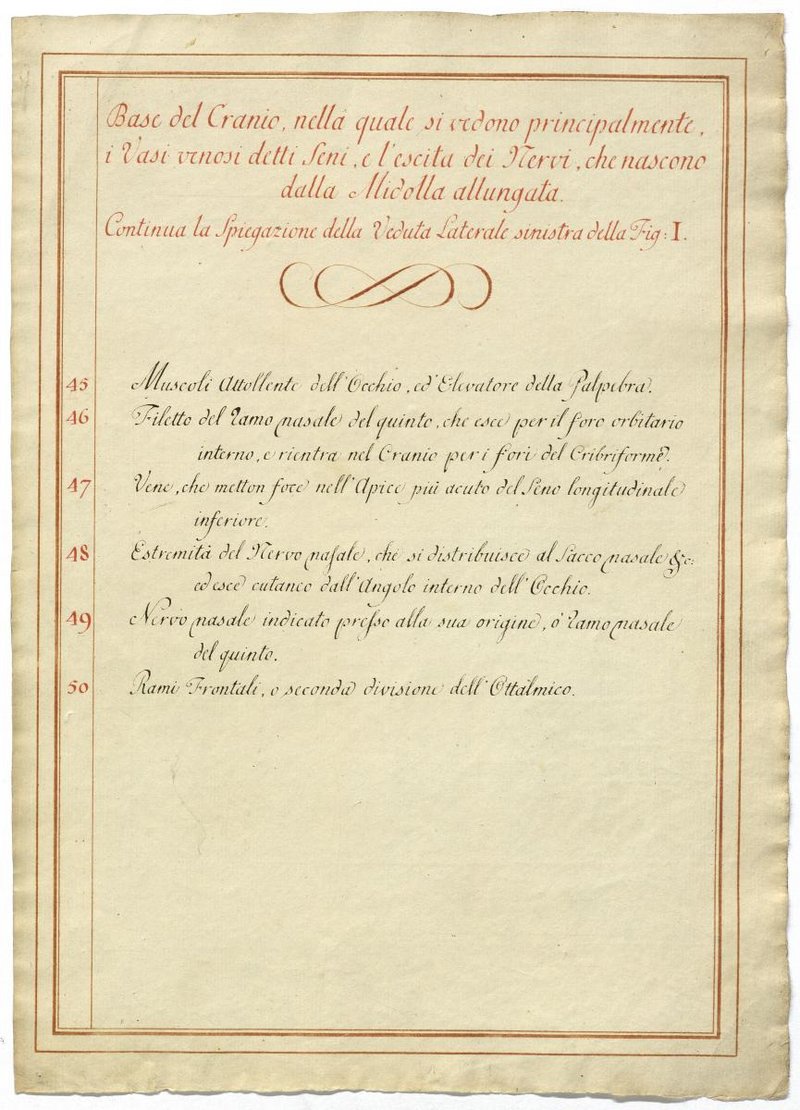 Base del Cranio, nella quale si vedono principalmente,
i Vasi venosi detti Seni, e l'escita dei Nervi, che nascono
dalla Midolla allungata.
Continua la Spiegazione della Veduta Laterale sinistra della Fig: I.
45 Muscoli Attollente dell'Occhio, ed'Elevatore della Palpebra.
46 Filetto del Ramo nasale del quinto, che esce per il foro orbitario
interno, e rientra nel Cranio per i fori del Cribriforme.
47 Vene, che metton foce nell'Apice più acuto del Seno longitudinale
inferiore.
48 Estremità del Nervo nasale, che si distribuisce al Sacco nasale &c:
ed esce cutaneo dall'Angolo interno dell'Occhio.
49 Nervo nasale indicato presso alla sua origine, o' Ramo nasale
del quinto.
50 Rami Frontali, o seconda divisione dell'Ottalmico.